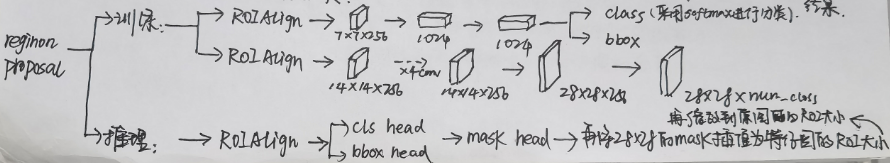 训练: → ROIAlign → 7×7×256 → 1024 → 1024 → class (采用softmax进行分类). 结果.
→ bbox
reginon proposal
→ ROIAlign → 14×14×256 ×4conv → 14×14×256 → 28×28×256 → 28×28×num_class
推理: → ROIAlign → cls head
bbox head → mask head → 再将28×28的mask插值为等行回的ROI大小
再缩放到原图的ROI大小